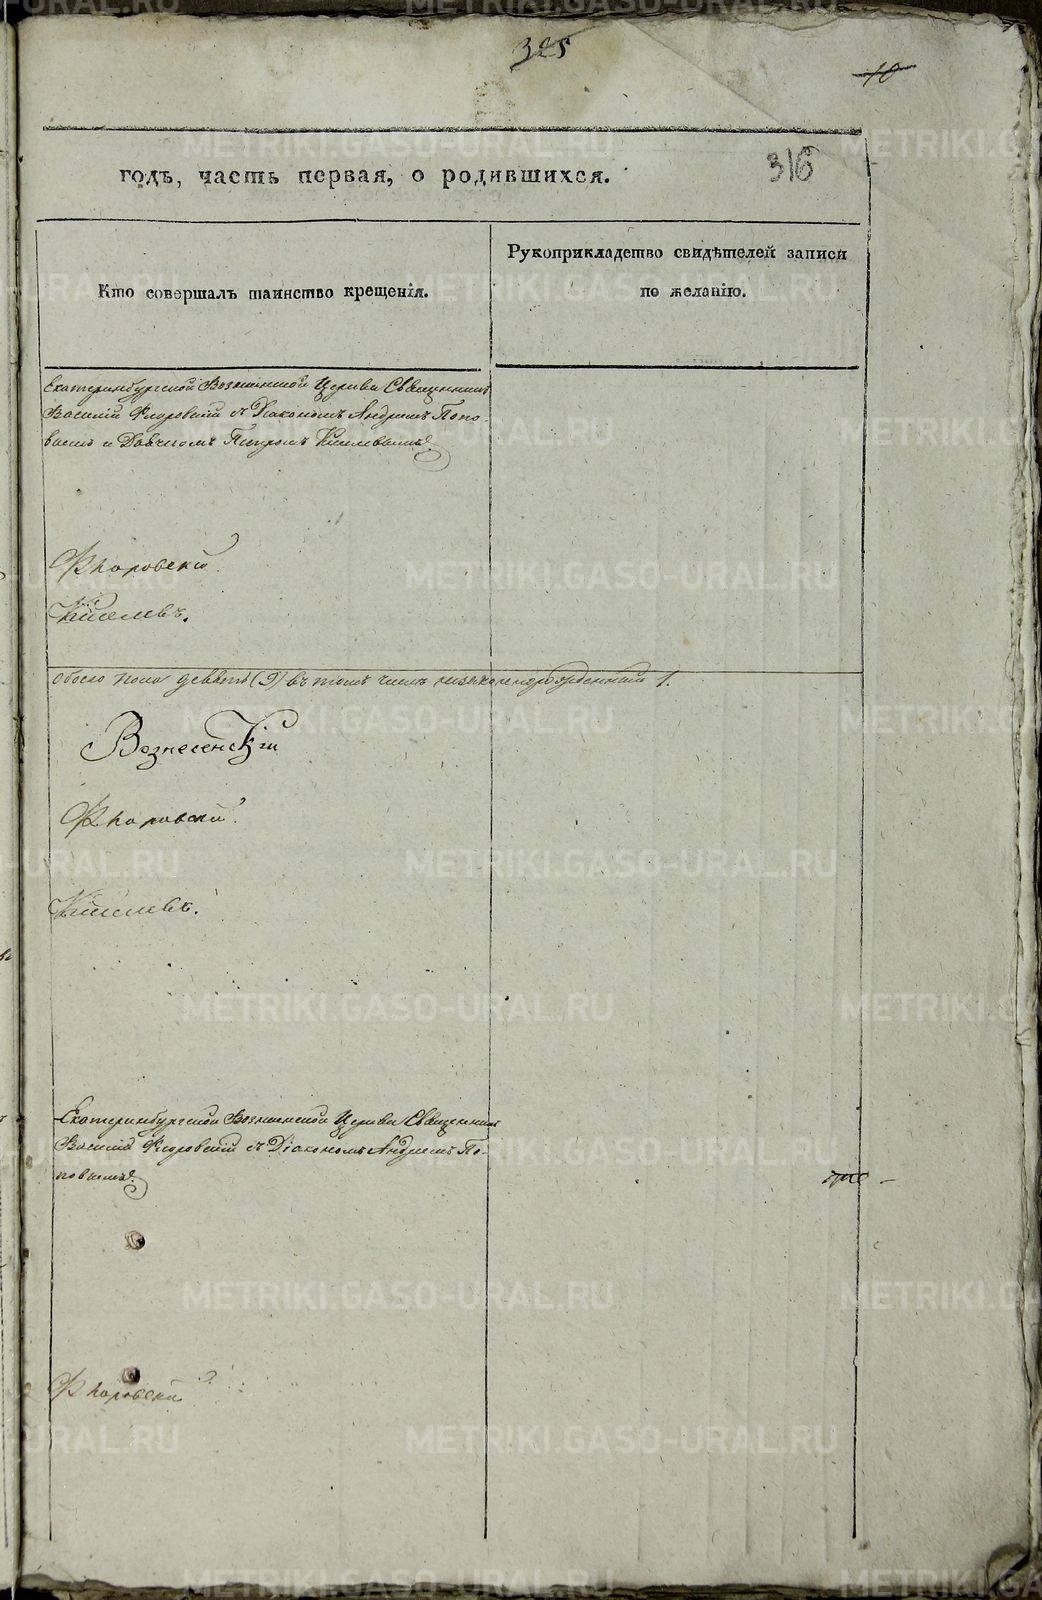 325
10
316
годъ, часть первая, о родившихся.
Кто совершалъ таинство крещенія.
Рукоприкладство свидѣтелей записи
по желанію.
Екатеринбургской Вознесенской Церкви Священникъ
Василій Флоровскій съ Діакономъ Андреемъ Попо-
вымъ и Дьячкомъ Петромъ Киселевымъ.
Флоровскій
Киселевъ.
обоего пола девять (9) въ томъ числѣ незаконнорожденный 1.
Вознесенскій
Флоровскій.
Киселевъ.
Екатеринбургской Вознесенской Церкви Священникъ
Василій Флоровскій съ Діакономъ Андреемъ По-
повымъ.
Флоровскій
METRIKI.GASO-URAL.RU